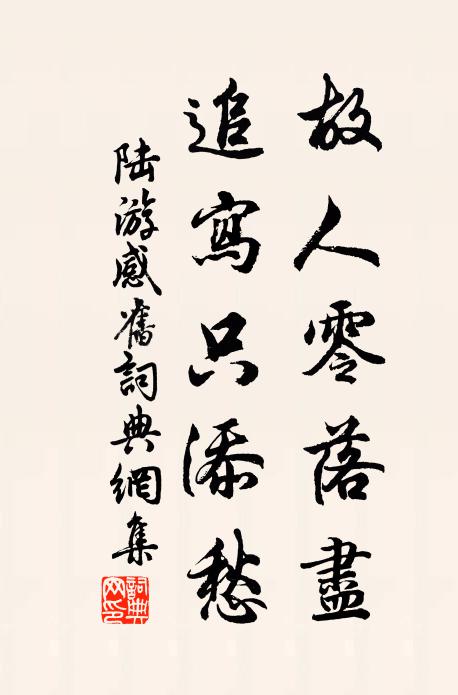 故人零落盡
追寫只添愁
陸游感舊詞典網集
詞典网印